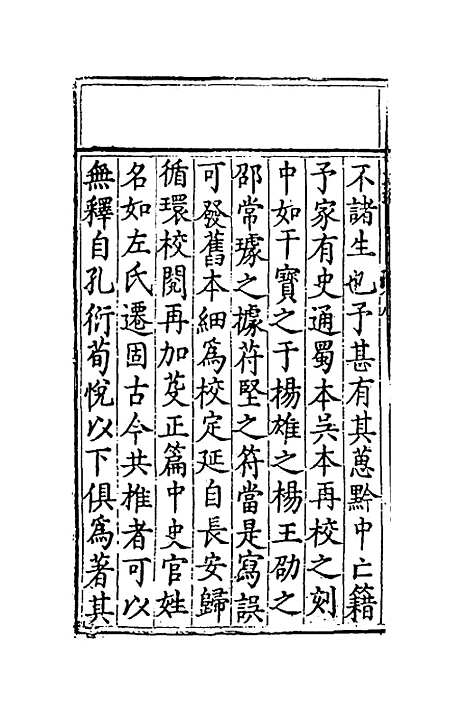 不諸生也予甚有其蒽黔中亡籍
予家有史通蜀本吳本再校之刻
中如干寶之于楊雄之楊王劭之
邵常璩之據苻堅之符當是寫誤
可發舊本細為校定延自長安歸
循環校閱再加芟正篇中史官姓
名如左氏遷固古今共推者可以
無釋自孔衍荀悅以下俱為著其